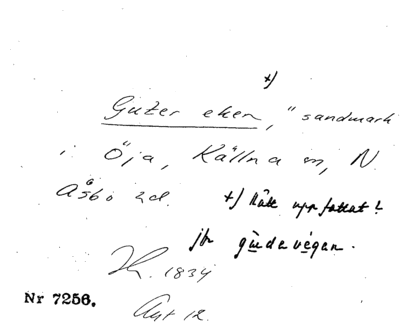 +)
Guter eken, "sandmark
i Öja, Källna sn, N.
Åsbo hd. +) Rätt uppfattat?
jfr gùdavégan.
1834
Nr 7256.
12.